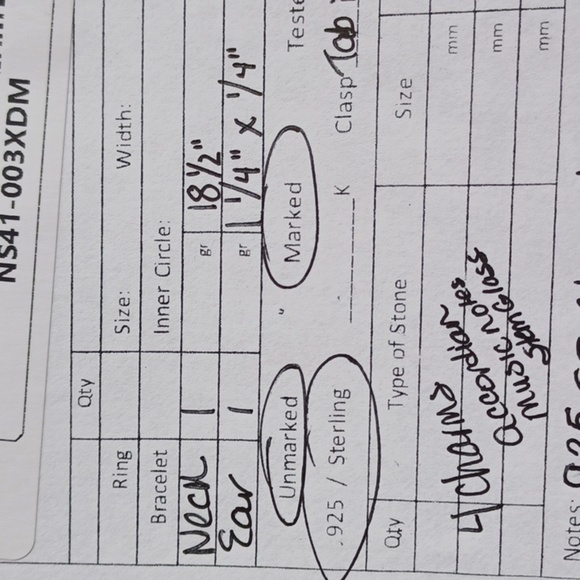 NS41-003XDM
Qty
Ring Size: Width:
Bracelet Inner Circle:
Neck 1 gr 18 1/2"
Ear 1 gr 1 1/4" x 1/4"
Unmarked " Marked
.925 / Sterling K Clasp Tab
Qty Type of Stone Size
4 Charms mm
accordian mm
music notes mm
Notes: 925